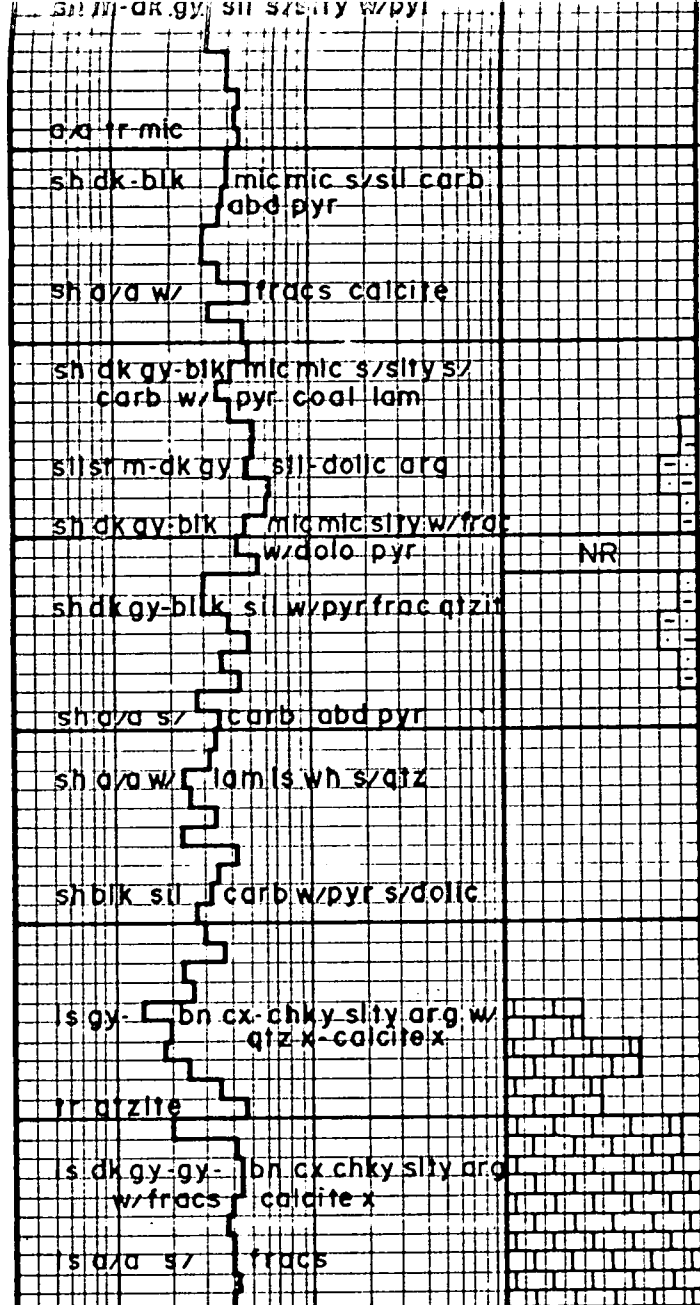 a/a tr mic
sh dk-blk micmic s/sil carb
abd pyr
sh a/a w/ fracs calcite
sh dk gy-blk micmic s/slty s/
carb w/ pyr coal lam
siltst m-dk gy sil-dolic arg
sh dk gy-blk micmic slty w/frac
w/dolo pyr
NR
sh dk gy-bllk sil w/pyr frac qtzit
sh a/a s/ carb abd pyr
sh a/a w/ lam ls wh s/qtz
sh blk sil carb w/pyr s/dolic
ls gy- bn cx-chky slty arg w/
qtz x-calcite x
tr qtzite
ls dk gy-gy- bn cx chky slty arg
w/fracs calcite x
ls a/a s/ fracs